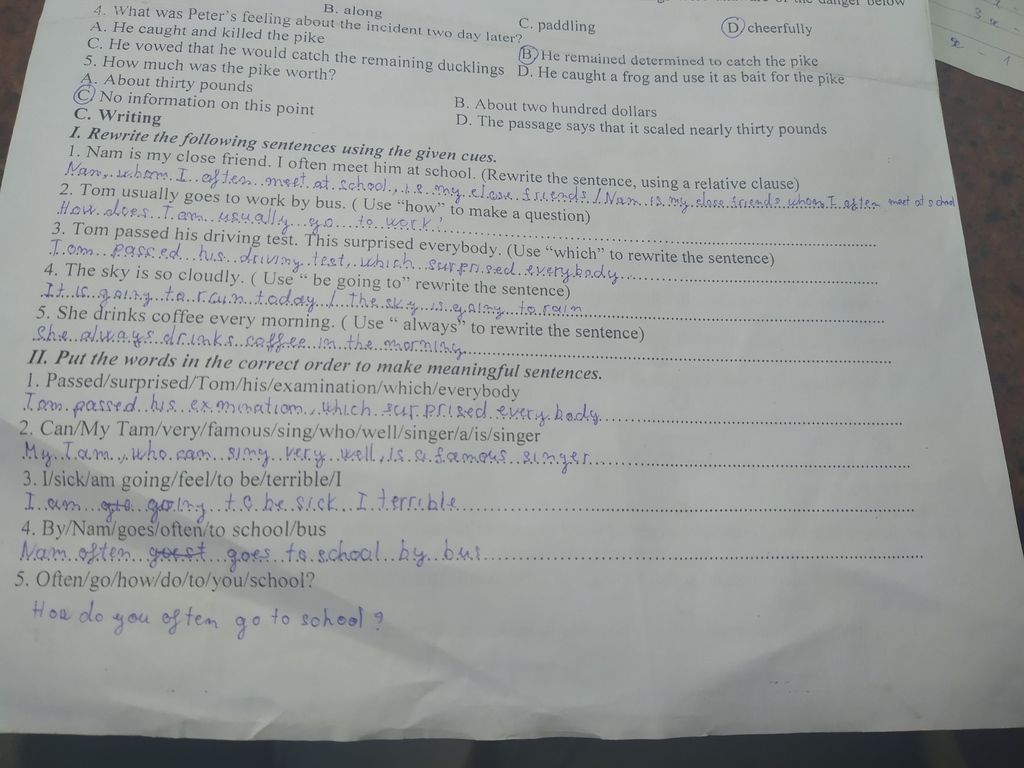 the danger below
B. along
C. paddling
D. cheerfully
4. What was Peter's feeling about the incident two day later?
A. He caught and killed the pike
B. He remained determined to catch the pike
C. He vowed that he would catch the remaining ducklings
D. He caught a frog and use it as bait for the pike
5. How much was the pike worth?
A. About thirty pounds
B. About two hundred dollars
C. No information on this point
D. The passage says that it scaled nearly thirty pounds
C. Writing
I. Rewrite the following sentences using the given cues.
1. Nam is my close friend. I often meet him at school. (Rewrite the sentence, using a relative clause)
Nam, whom I often meet at school, is my close friends / Nam is my close friends whom I often meet at school
2. Tom usually goes to work by bus. ( Use "how" to make a question)
How does Tom usually go to work?
3. Tom passed his driving test. This surprised everybody. (Use "which" to rewrite the sentence)
Tom passed his driving test, which surprised everybody
4. The sky is so cloudly. ( Use " be going to" rewrite the sentence)
It is going to rain today / The sky is going to rain
5. She drinks coffee every morning. ( Use " always" to rewrite the sentence)
She always drinks coffee in the morning
II. Put the words in the correct order to make meaningful sentences.
1. Passed/surprised/Tom/his/examination/which/everybody
Tom passed his examination, which surprised everybody
2. Can/My Tam/very/famous/sing/who/well/singer/a/is/singer
My Tam, who can sing very well, is a famous singer
3. I/sick/am going/feel/to be/terrible/I
I am going to be sick I terrible
4. By/Nam/goes/often/to school/bus
Nam often goes to school by bus
5. Often/go/how/do/to/you/school?
How do you often go to school ?